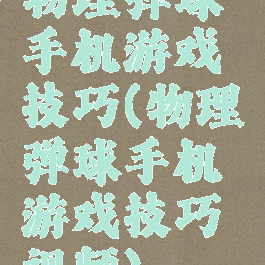 物理弹球
手机游戏
技巧(物理
弹球手机
游戏技巧
视频)